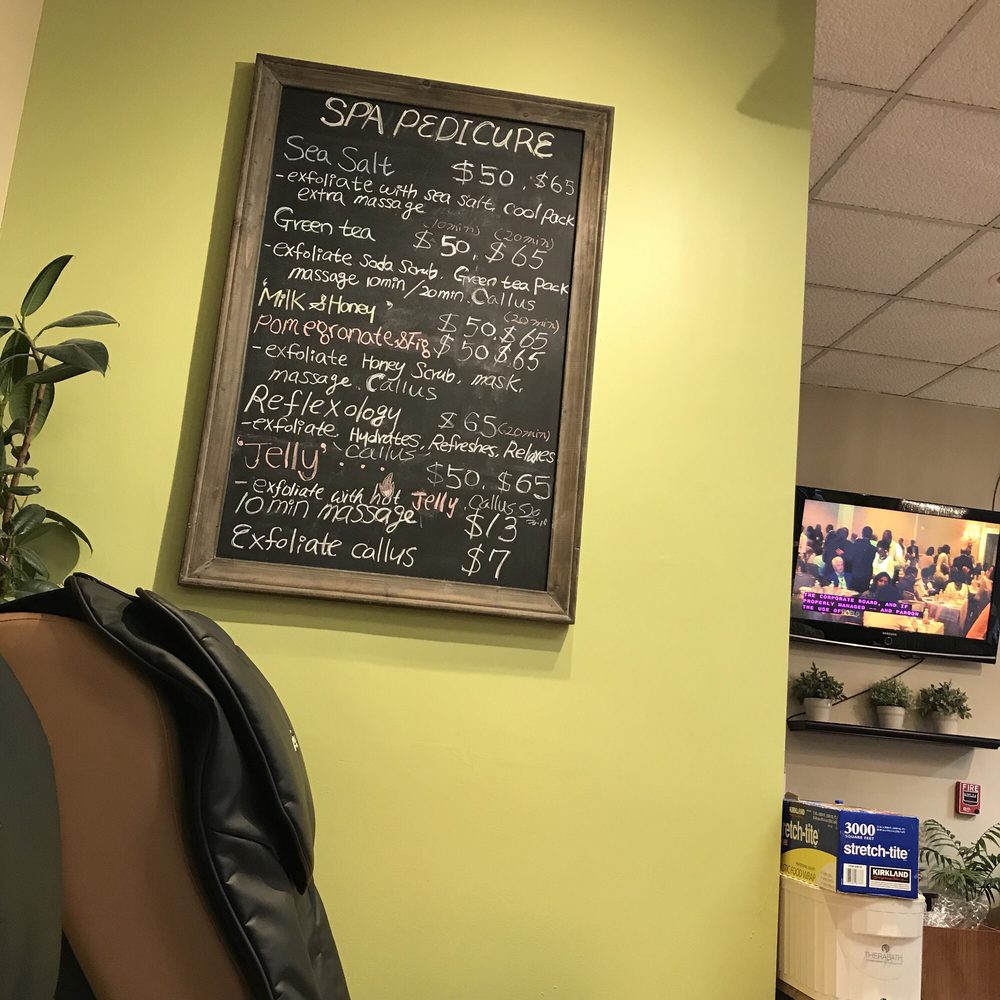 SPA PEDICURE
Sea Salt $50. $65
- exfoliate with sea salt, cool pack
extra massage
(10min) (20min)
Green tea $50. $65
- exfoliate Soda Scrub. Green tea pack
massage 10min/20min. Callus
(20min)
"Milk & Honey" $50. $65
Pomegranate & Fig $50 $65
- exfoliate Honey Scrub. mask.
massage. Callus
Reflexology $65 (20min)
- exfoliate, Hydrates, Refreshes, Relaxes
"Jelly" Callus... $50. $65
- exfoliate with hot Jelly. Callus
10 min massage $13
Exfoliate callus $7
THE CORPORATE BOARD, AND IF
PROPERLY MANAGED AND PARDON
THE USE OF
SAMSUNG
FIRE
KIRKLAND
etch-tite
FOOD WRAP
3000
SQUARE FEET
stretch-tite
KIRKLAND
THERABATH